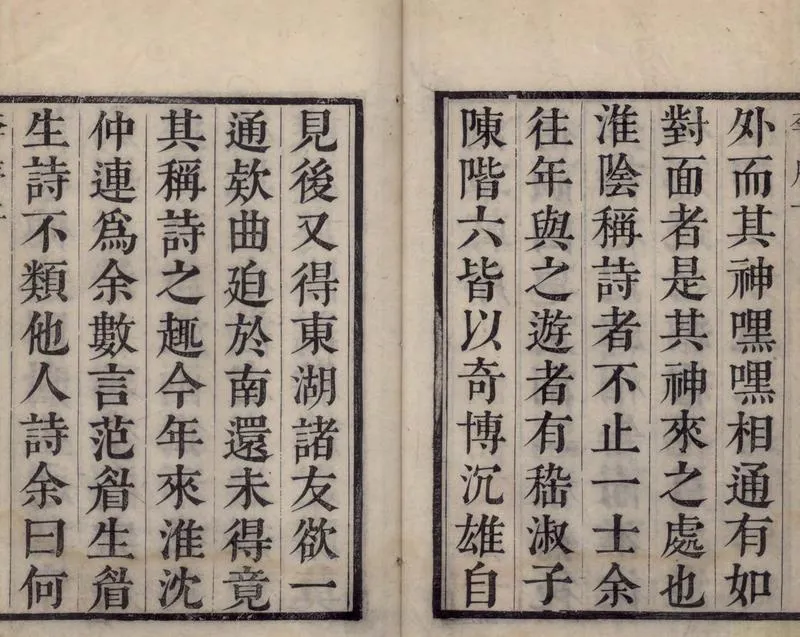 外而其神嘿嘿相通有如
對面者是其神來之處也
淮陰稱詩者不止一士余
往年與之遊者有嵇淑子
陳階六皆以奇博沉雄自
見後又得東湖諸友欲一
通欵曲廹於南還未得竟
其稱詩之趣今年來淮沈
仲連爲余數言范眢生眢
生詩不類他人詩余曰何